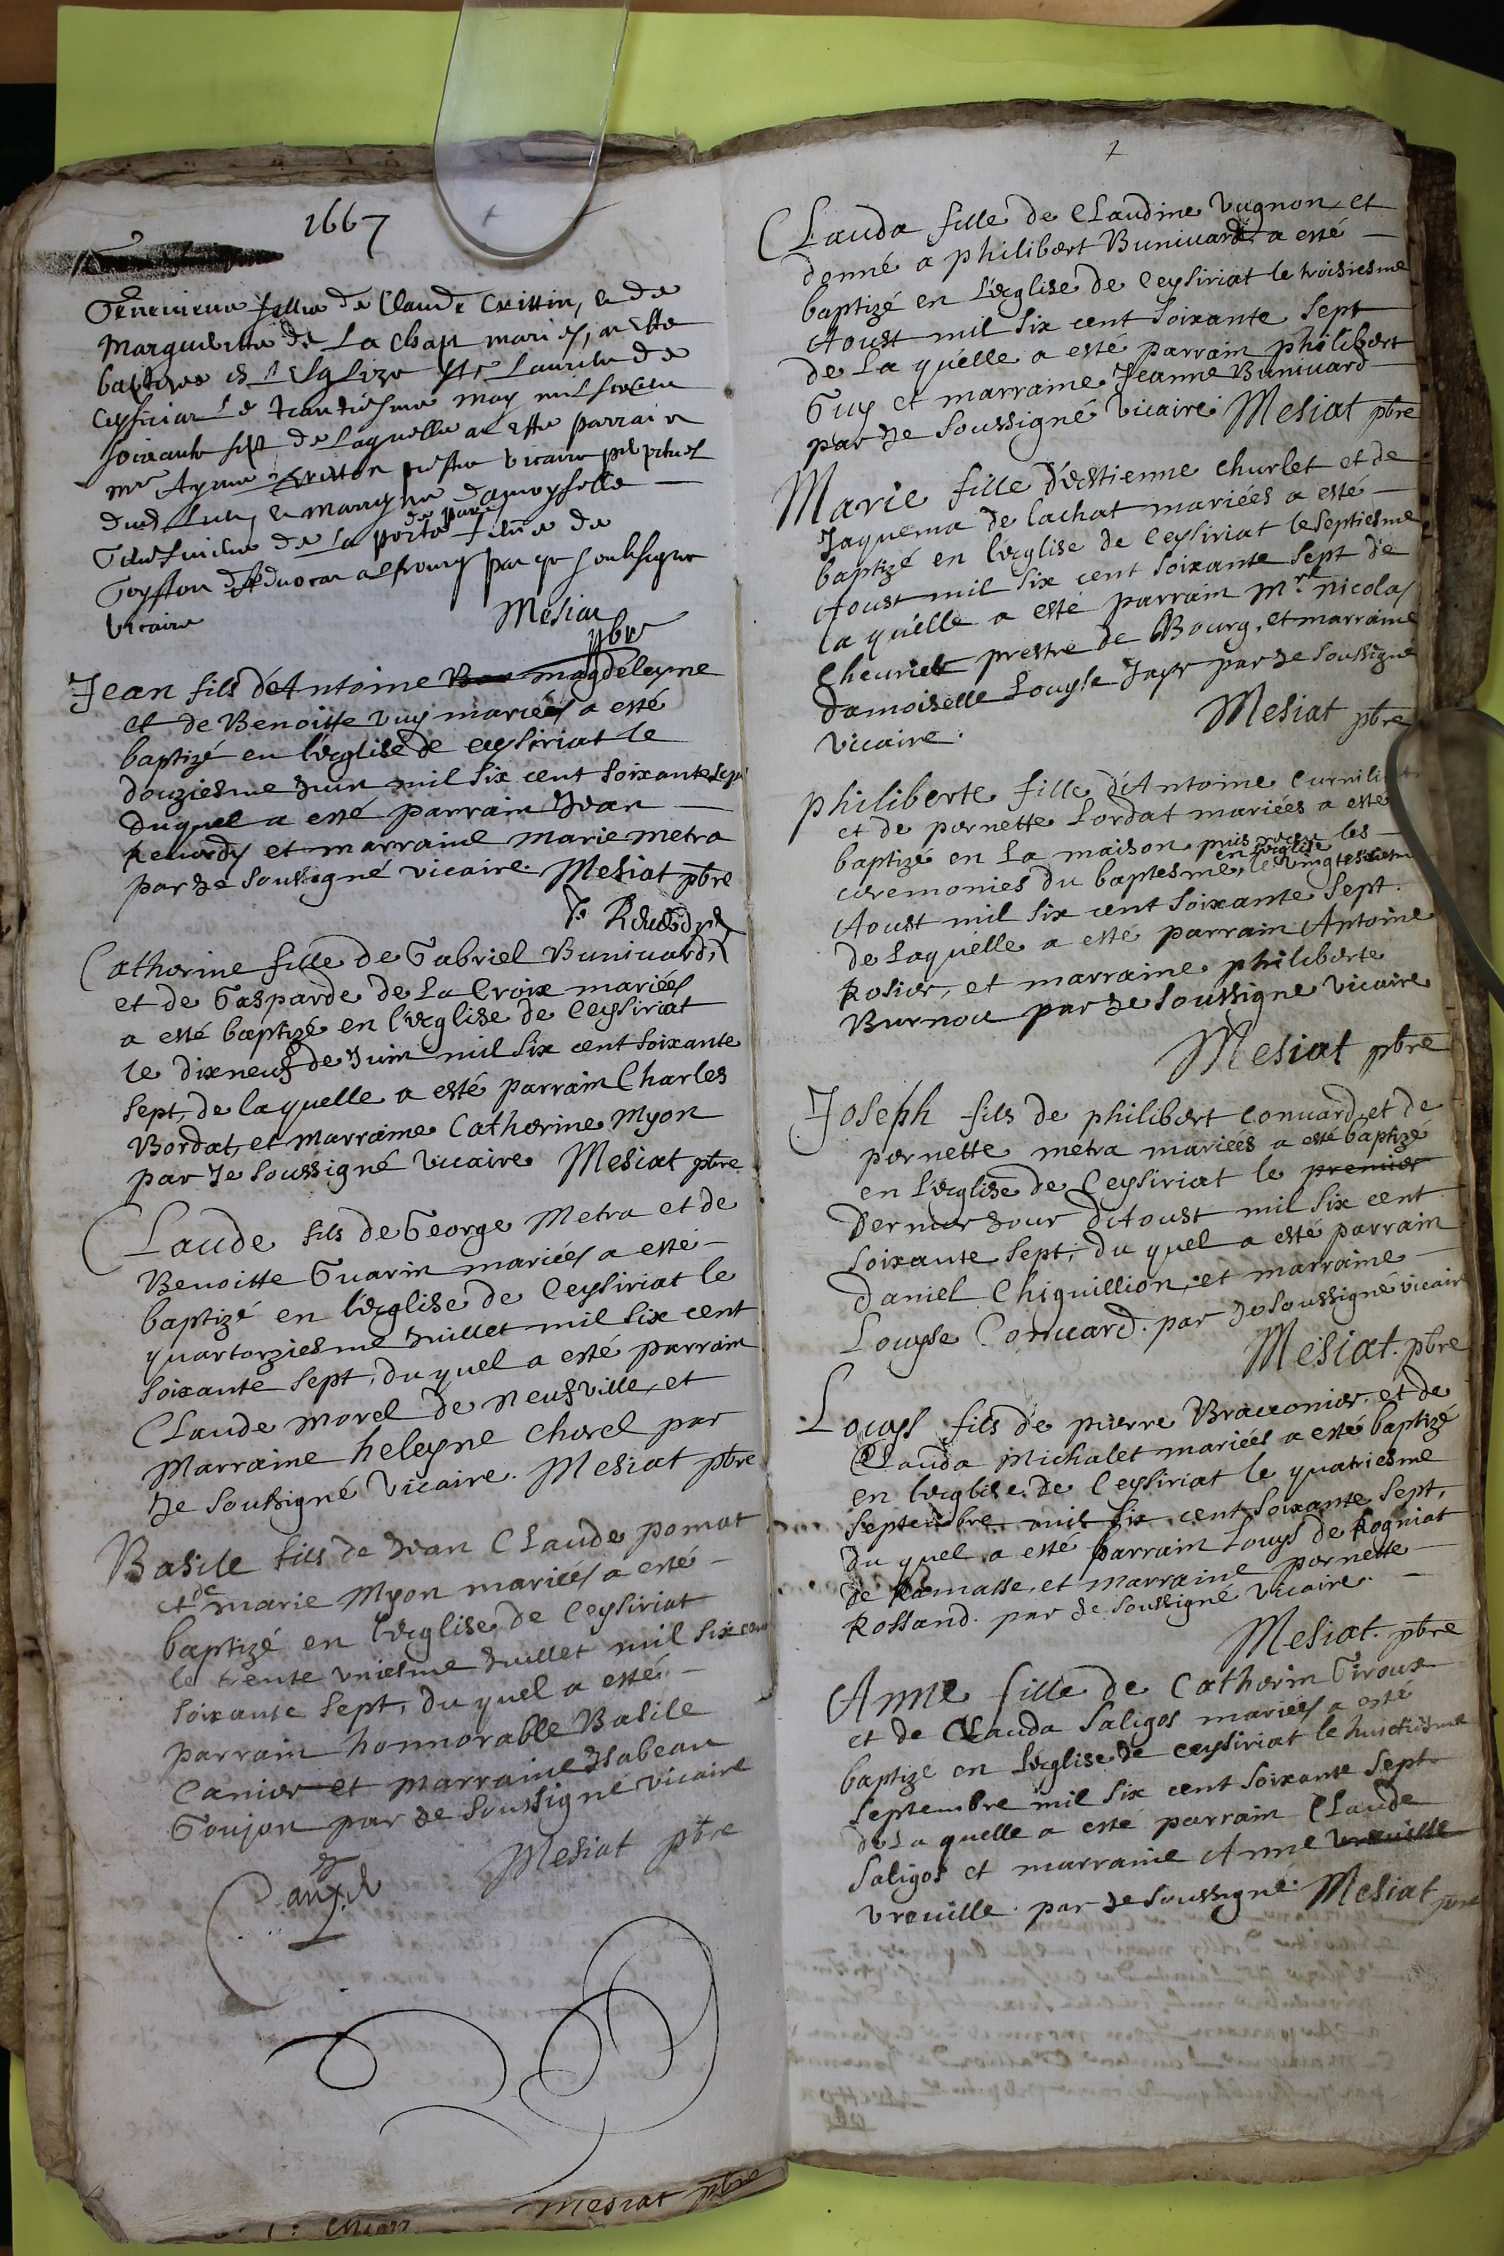 1667
Genevieve fillie de Claude Crittin, & de
Marguerite de La Chapt mariés, a esté
baptizee en L'Eglize Ste Laurete de
Ceysiriat le trantiesme may mil six cen
soixante sept de laquelle a esté parrain
mre Ayme prestre vicaire perpetuel
dud. & marrayne damoyselle
de La porte femme de
de par
advocat a bourg par je soubsigne
vicaire
Mesiat
pbre
Jean fils d'Antoine magdeleyne
et de Benoitte Vuy mariées a esté
baptizé en l'eglise de ceysiriat le
douziesme Juin mil six cent soixante sept
duquel a esté parrain Jean —
Reuerdy et marraine Marie metra
par Je soussigné vicaire. Mesiat pbre
J. Reuerdy
Catherine fille de Gabriel Buniuard,
et de Gasparde de La Croix mariés
a esté baptizé en l'eglise de Ceysiriat
le dixneuf de Juin mil six cent soixante
sept, de laquelle a esté parrain Charles
Bordat, et marraine Catherine Myon
par Je soussigné vicaire Mesiat pbre
Claude fils de George Metra et de
Benoitte Guarin mariés a esté —
baptizé en l'eglise de Ceysiriat le
quartorziesme Juillet mil six cent
soixante sept, du quel a esté parrain
Claude morel de neufville, et
Marraine heleyne chorel par
Je soussigné vicaire. Mesiat pbre
Basile fils de Jean Claude pomat
et de marie Myon mariés a esté —
baptizé en l'eglise de Ceysiriat
le trente uniesme Juillet mil six cent
soixante sept, du quel a esté —
parrain honnorable Basile
Canier et marraine Isabeau
Goujon par Je soussigné vicaire
Mesiat pbre
Mesiat pbre
Clauda fille de Claudine Vugnon, et
donné a philibert Buniuard a esté —
baptizé en l'eglise de Ceysiriat le troisiesme
Aoust mil six cent soixante sept
de La quelle a esté parrain philibert
Guy et marraine Jeanne Buniuard —
par Je soussigné vicaire Mesiat pbre
Marie fille d'estienne churlet et de
Jaquema de lachat mariées a esté —
baptizé en l'eglise de Ceysiriat le septiesme
Aoust mil six cent soixante sept de
la quelle a esté parrain Mre. nicolas
Cheurier prestre de Bourg, et marraine
damoiselle Louyse Jayr par Je soussigné
vicaire.
Mesiat pbre
philiberte fille d'Antoine
et de pernette Lordat mariées a esté
baptizé en La maison puis receu les —
ceremonies du baptesme en l'eglise le
Aoust mil six cent soixante sept.
de Laquelle a esté parrain Antoine
Rosier, et marraine philiberte
Burnou par Je soussigne vicaire
Mesiat pbre
Joseph fils de philibert Conuard, et de
pernette metra mariées a esté baptizé
en l'eglise de Ceysiriat le premier
dernier Jour d'Aoust mil six cent
soixante sept, du quel a esté parrain
daniel Chiquillion, et marraine —
Louyse Conuard. par Je soussigné vicaire
Mesiat. pbre
Louys fils de pierre Braconier, et de
Clauda Michalet mariées a esté baptizé
en l'eglise de Ceysiriat le quatriesme
Septembre mil six cent soixante sept,
du quel a esté parrain Louys de Rogniat
de Ramasse, et marraine pernette —
Rossand. par Je soussigné vicaire. —
Mesiat. pbre
Anne fille de Catherin Giroux
et de Clauda Saligos mariés a esté
baptizé en l'eglise de ceysiriat le huictiesme
septembre mil six cent soixante sept
de La quelle a esté parrain Claude
Saligos et marraine Anne Vreuille
Vreuille. par Je soussigné. Mesiat pbre